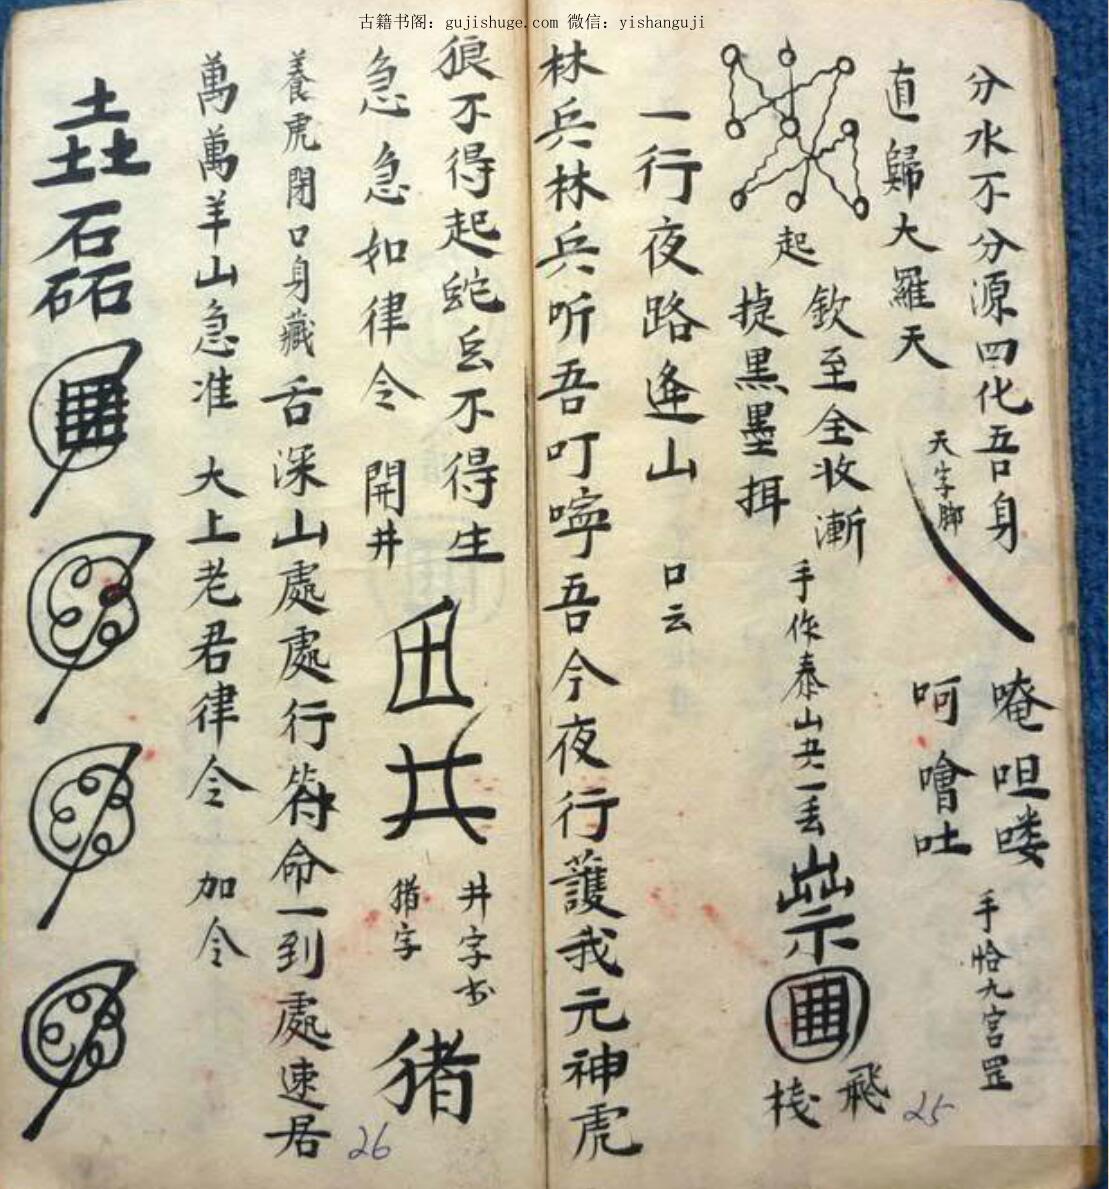 古籍书阁：gujishuge.com 微信：yishanguji
分水不分源四化吾身
直歸大羅天
天字脚
唵呾喽
呵噲吐
手恰九宫罡
起
欽至全收漸
捷黑墨挕
手作泰山共一丢
崇
飛
栈
25
一行夜路逢山
口云
林兵林兵听吾叮嚀吾今夜行護我元神虎
狼不得起蛇𧈧不得生
急急如律令
開井
井字书
猎字
猪
養虎閉口身藏舌深山處處行符命一到處速居
萬萬羊山急准 大上老君律令 加令
土土土石石石
26